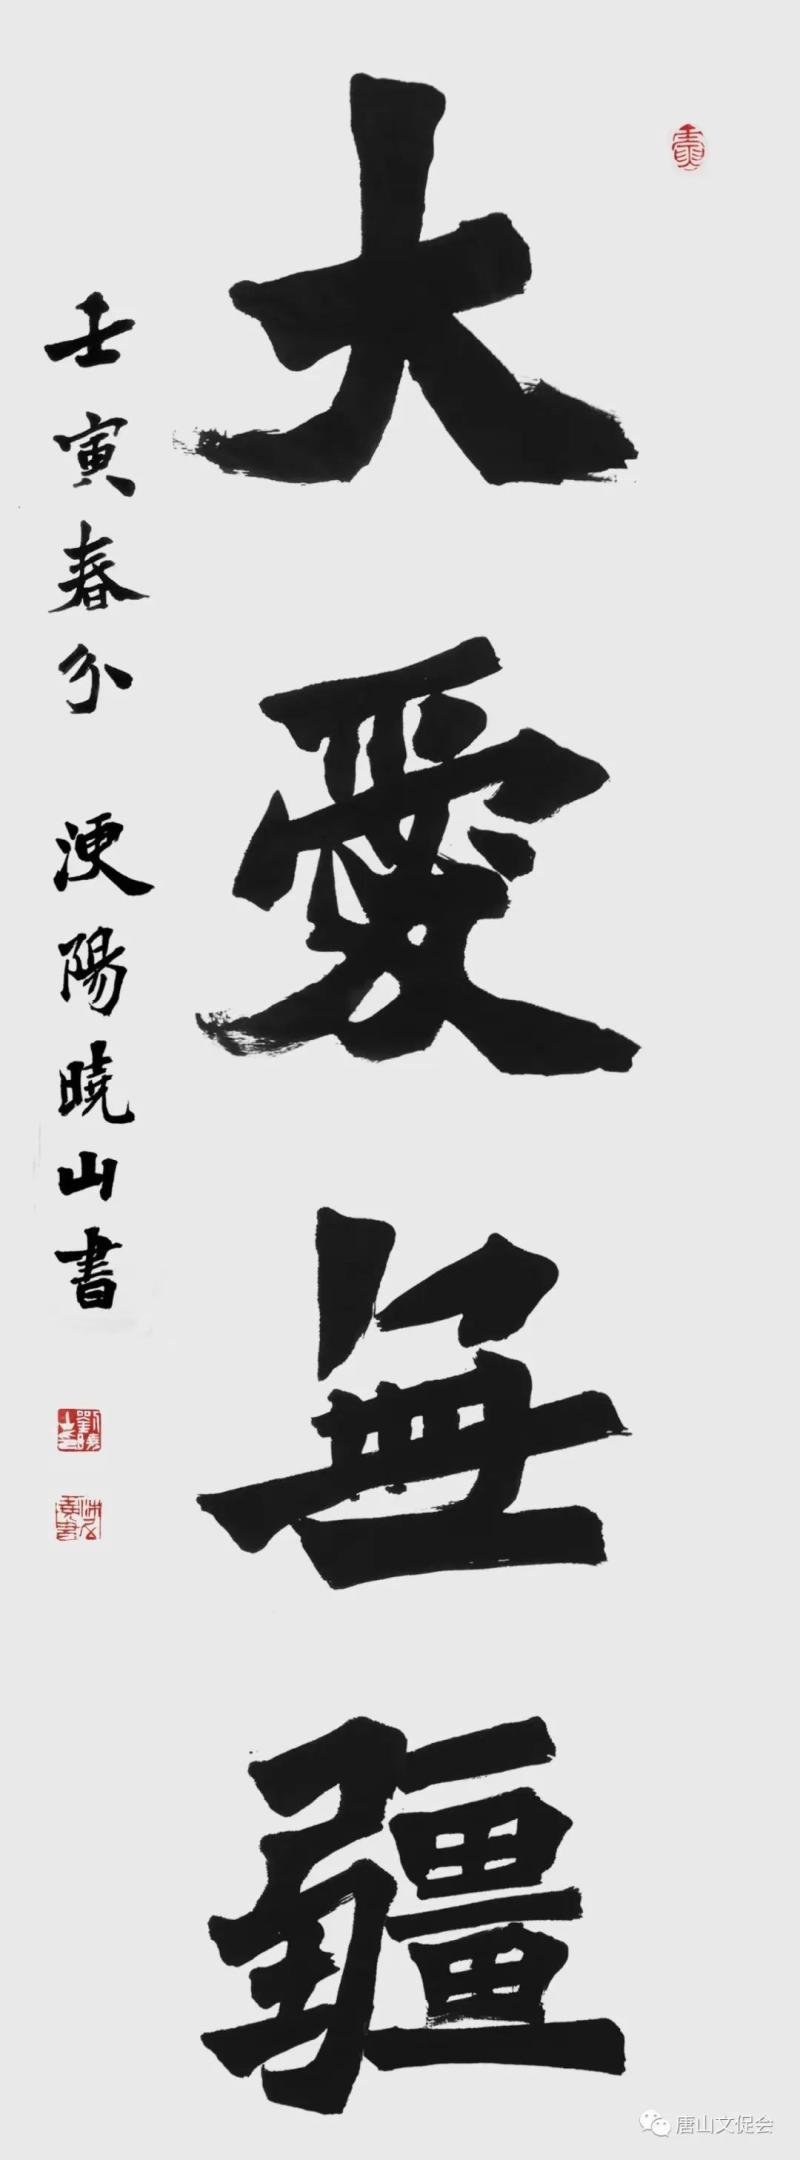 大愛無疆
壬寅春分 浭陽曉山書
劉曉山
唐山文促会